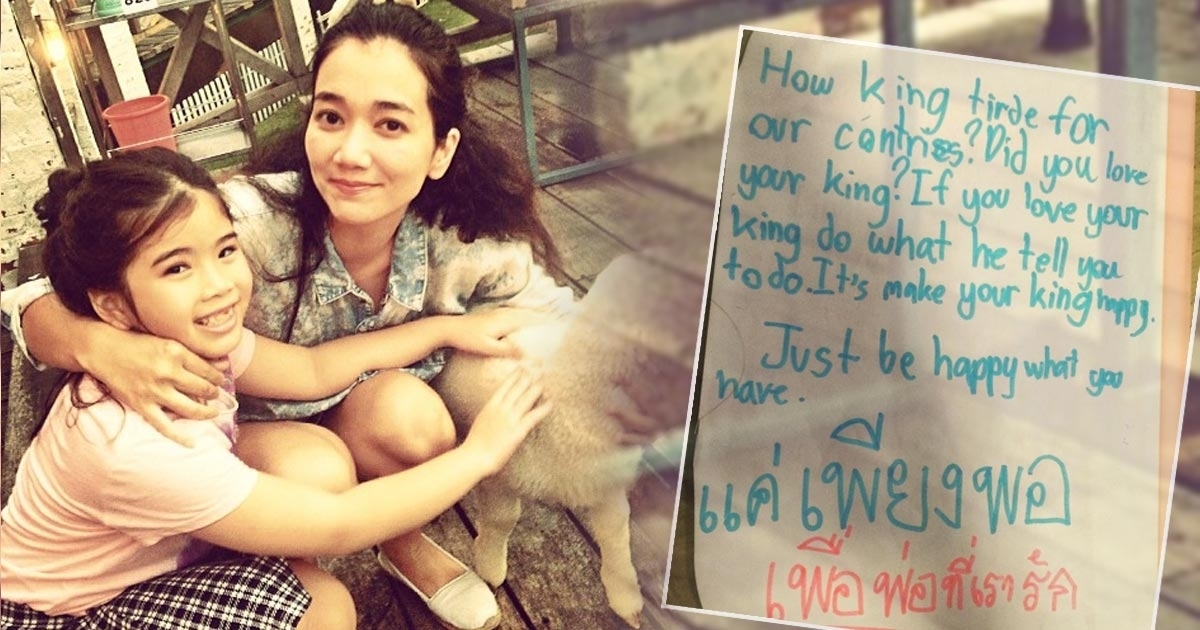 How king tirde for
our contries? Did you love
your king? If you love your
king do what he tell you
to do. It's make your king happy.
Just be happy what you
have.
แค่เพียงพอ
เพื่อพ่อที่เรารัก